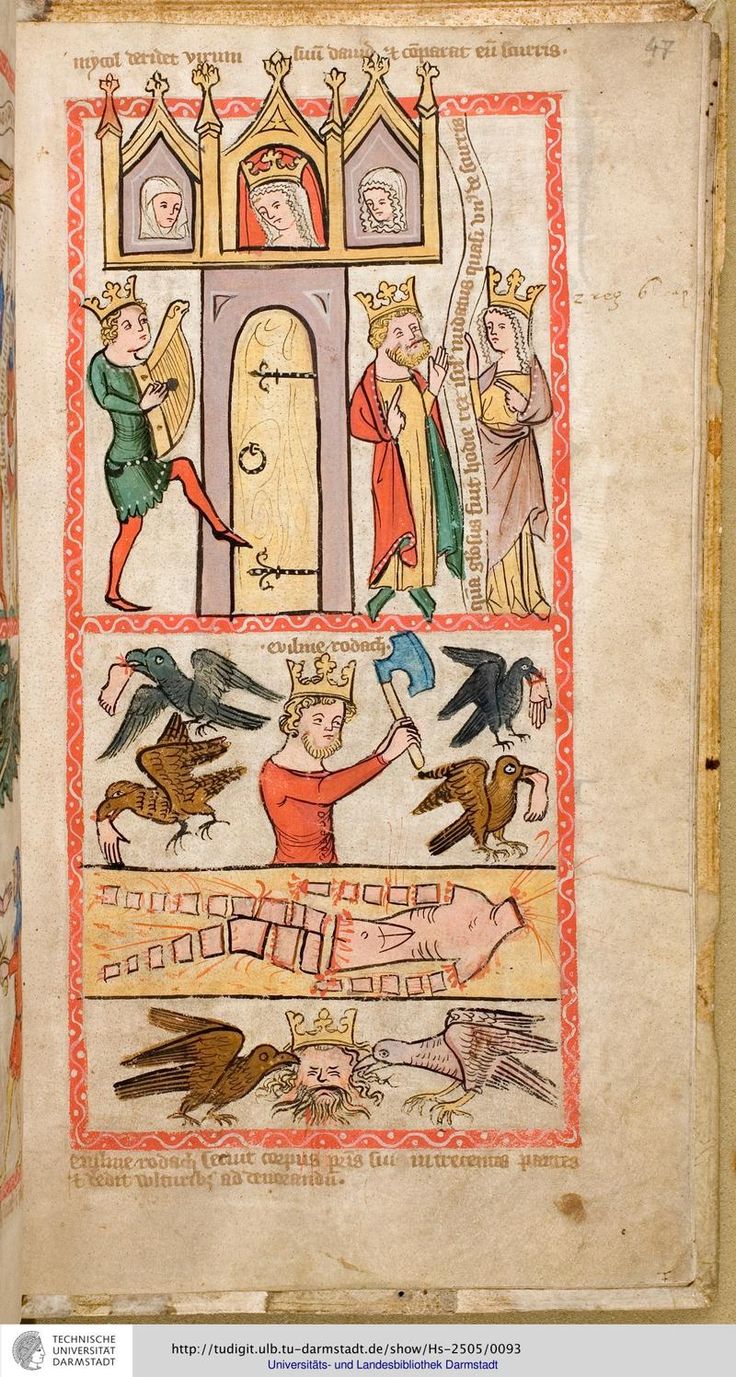 mycol deridet virum suū dauid & cōparat eū scurris.
47
qua gl'osus fuit hodie rex isrl' nudatus quasi vn' de scurris
2 reg 6
· euilme rodach ·
euilme rodach secuit corpus pris sui in trecentas partes
& dedit wlturib; ad deuorandū.
TECHNISCHE
UNIVERSITÄT
DARMSTADT
http://tudigit.ulb.tu-darmstadt.de/show/Hs-2505/0093
Universitäts- und Landesbibliothek Darmstadt